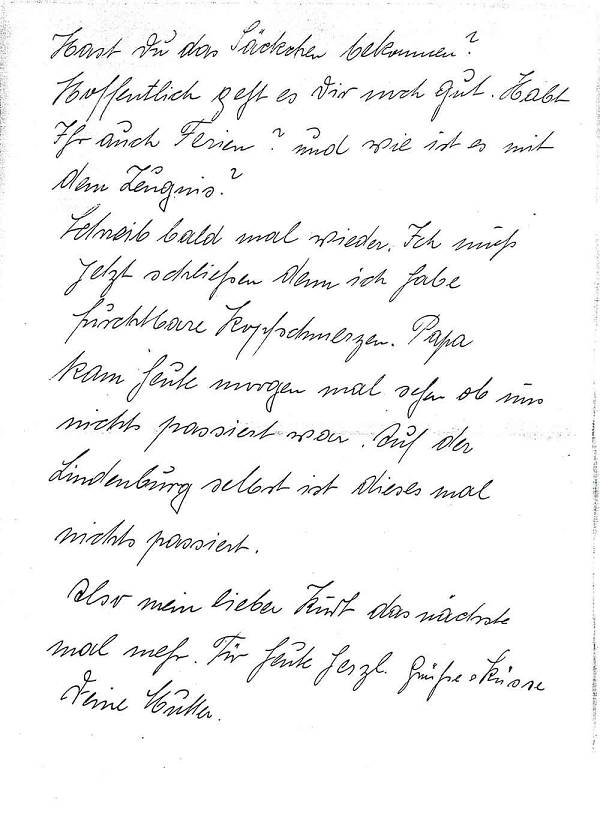 Hast Du das Säckchen bekommen?
Hoffentlich geht es Dir noch gut. Habt
Ihr auch Ferien? und wie ist es mit
dem Zeugnis?
Schreib bald mal wieder. Ich muß
jetzt schließen denn ich habe
furchtbare Kopfschmerzen. Papa
kam heute morgen mal sehen ob uns
nichts passiert war. Auf der
Lindenburg selbst ist dieses mal
nichts passiert.
Also mein lieber Kurt das nächste
mal mehr. Für heute herzl. Grüße u Küsse
Deine Mutter.